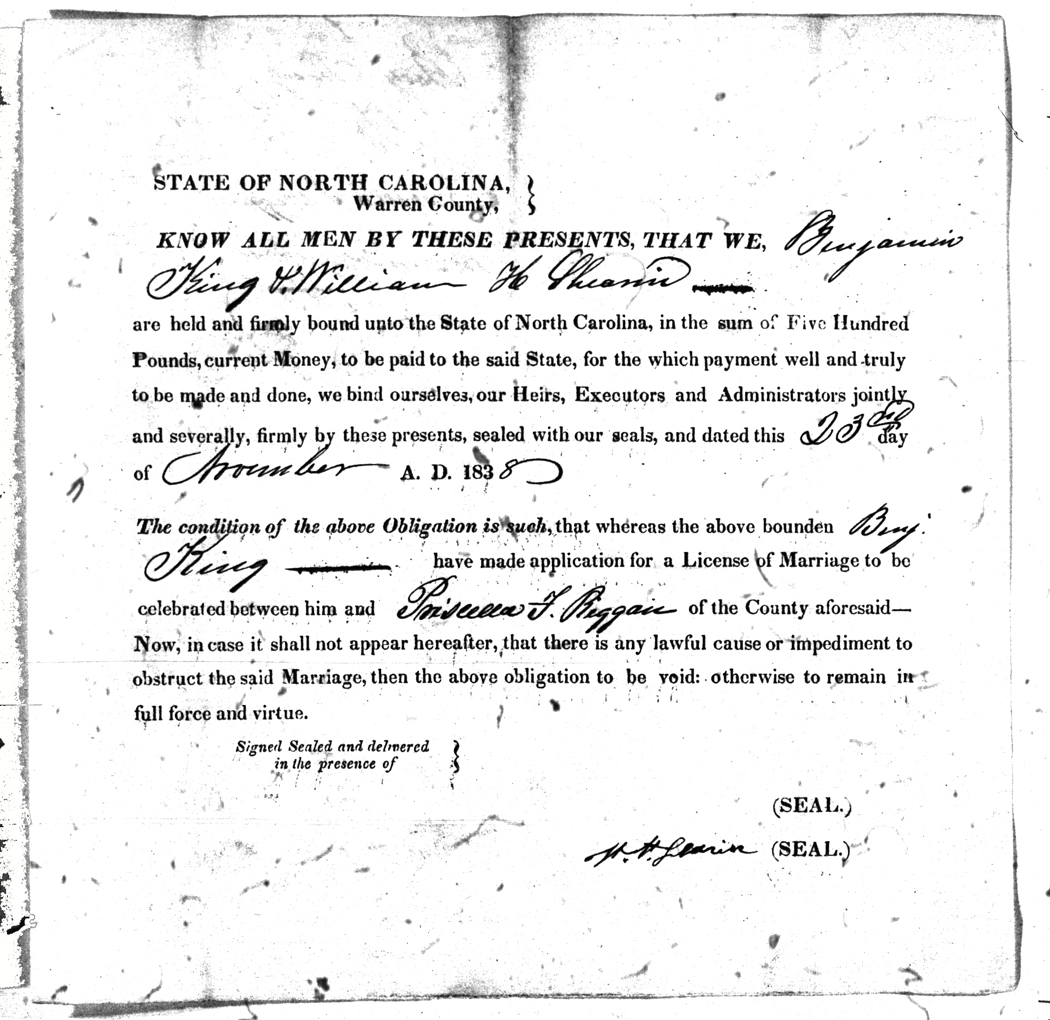 STATE OF NORTH CAROLINA,
Warren County,
KNOW ALL MEN BY THESE PRESENTS, THAT WE, Benjamin
King & William H Shearin
are held and firmly bound unto the State of North Carolina, in the sum of Five Hundred
Pounds, current Money, to be paid to the said State, for the which payment well and truly
to be made and done, we bind ourselves, our Heirs, Executors and Administrators jointly
and severally, firmly by these presents, sealed with our seals, and dated this 23rd day
of November A. D. 1838
The condition of the above Obligation is such, that whereas the above bounden Benj.
King have made application for a License of Marriage to be
celebrated between him and Priscilla F. Riggan of the County aforesaid—
Now, in case it shall not appear hereafter, that there is any lawful cause or impediment to
obstruct the said Marriage, then the above obligation to be void: otherwise to remain in
full force and virtue.
Signed Sealed and delivered
in the presence of
(SEAL.)
W. H. Shearin (SEAL.)